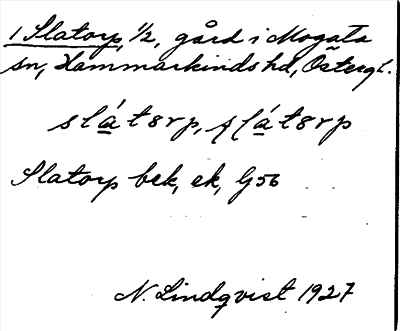 1 Slatorp, 1/2, gård i Mogata
sn, Hammarkinds hd, Östergl.
slát8rp, ʃlát8rp
Slatorp bek, ek, G56
N. Lindqvist 1927